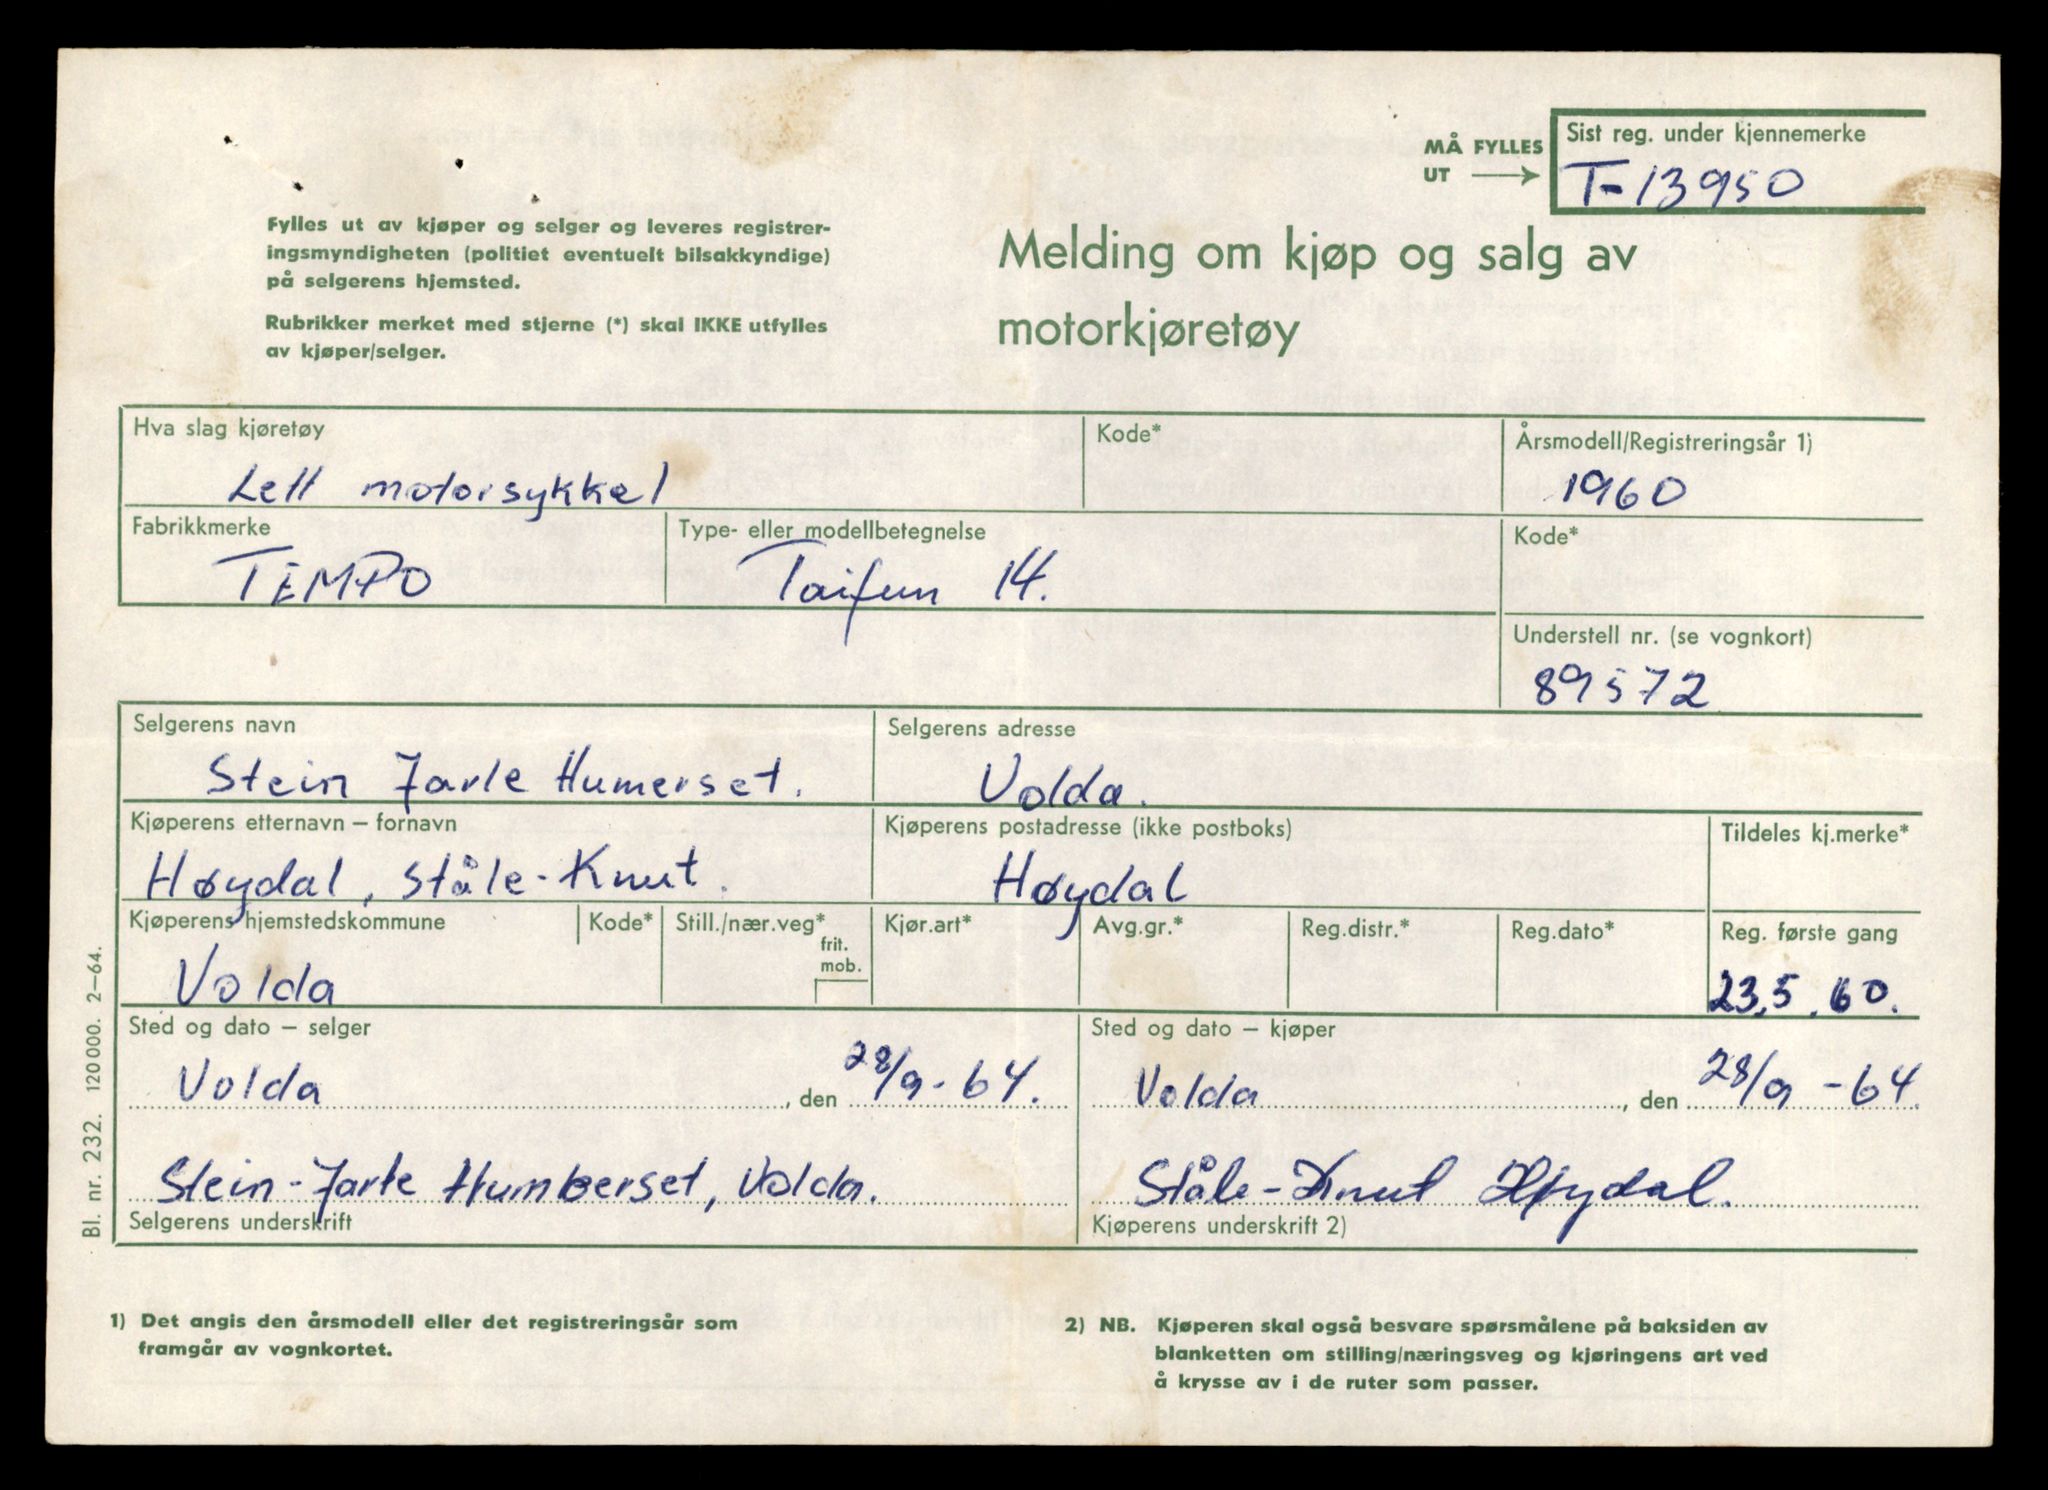 MÅ FYLLES
UT
Sist reg. under kjennemerke
T-13950
Fylles ut av kjøper og selger og leveres registrer-
ingsmyndigheten (politiet eventuelt bilsakkyndige)
på selgerens hjemsted.
Rubrikker merket med stjerne (*) skal IKKE utfylles
av kjøper/selger.
Melding om kjøp og salg av
motorkjøretøy
Hva slag kjøretøy
Lett motorsykkel
Kode*
Årsmodell/Registreringsår 1)
1960
Fabrikkmerke
TEMPO
Type- eller modellbetegnelse
Taifun 14.
Kode*
Understell nr. (se vognkort)
89572
Selgerens navn
Stein Jarle Humerset.
Selgerens adresse
Volda.
Kjøperens etternavn – fornavn
Høydal, Ståle-Knut.
Kjøperens postadresse (ikke postboks)
Høydal
Tildeles kj.merke*
Kjøperens hjemstedskommune
Volda
Kode*
Still./nær.veg*
frit.
mob.
Kjør.art*
Avg.gr.*
Reg.distr.*
Reg.dato*
Reg. første gang
23.5.60.
Sted og dato – selger
Volda, den 28/9-64.
Sted og dato – kjøper
Volda, den 28/9-64.
Stein-Jarle Humberset, Volda.
Selgerens underskrift
Ståle-Knut Høydal.
Kjøperens underskrift 2)
Bl. nr. 232. 120 000. 2–64.
1) Det angis den årsmodell eller det registreringsår som
framgår av vognkortet.
2) NB. Kjøperen skal også besvare spørsmålene på baksiden av
blanketten om stilling/næringsveg og kjøringens art ved
å krysse av i de ruter som passer.